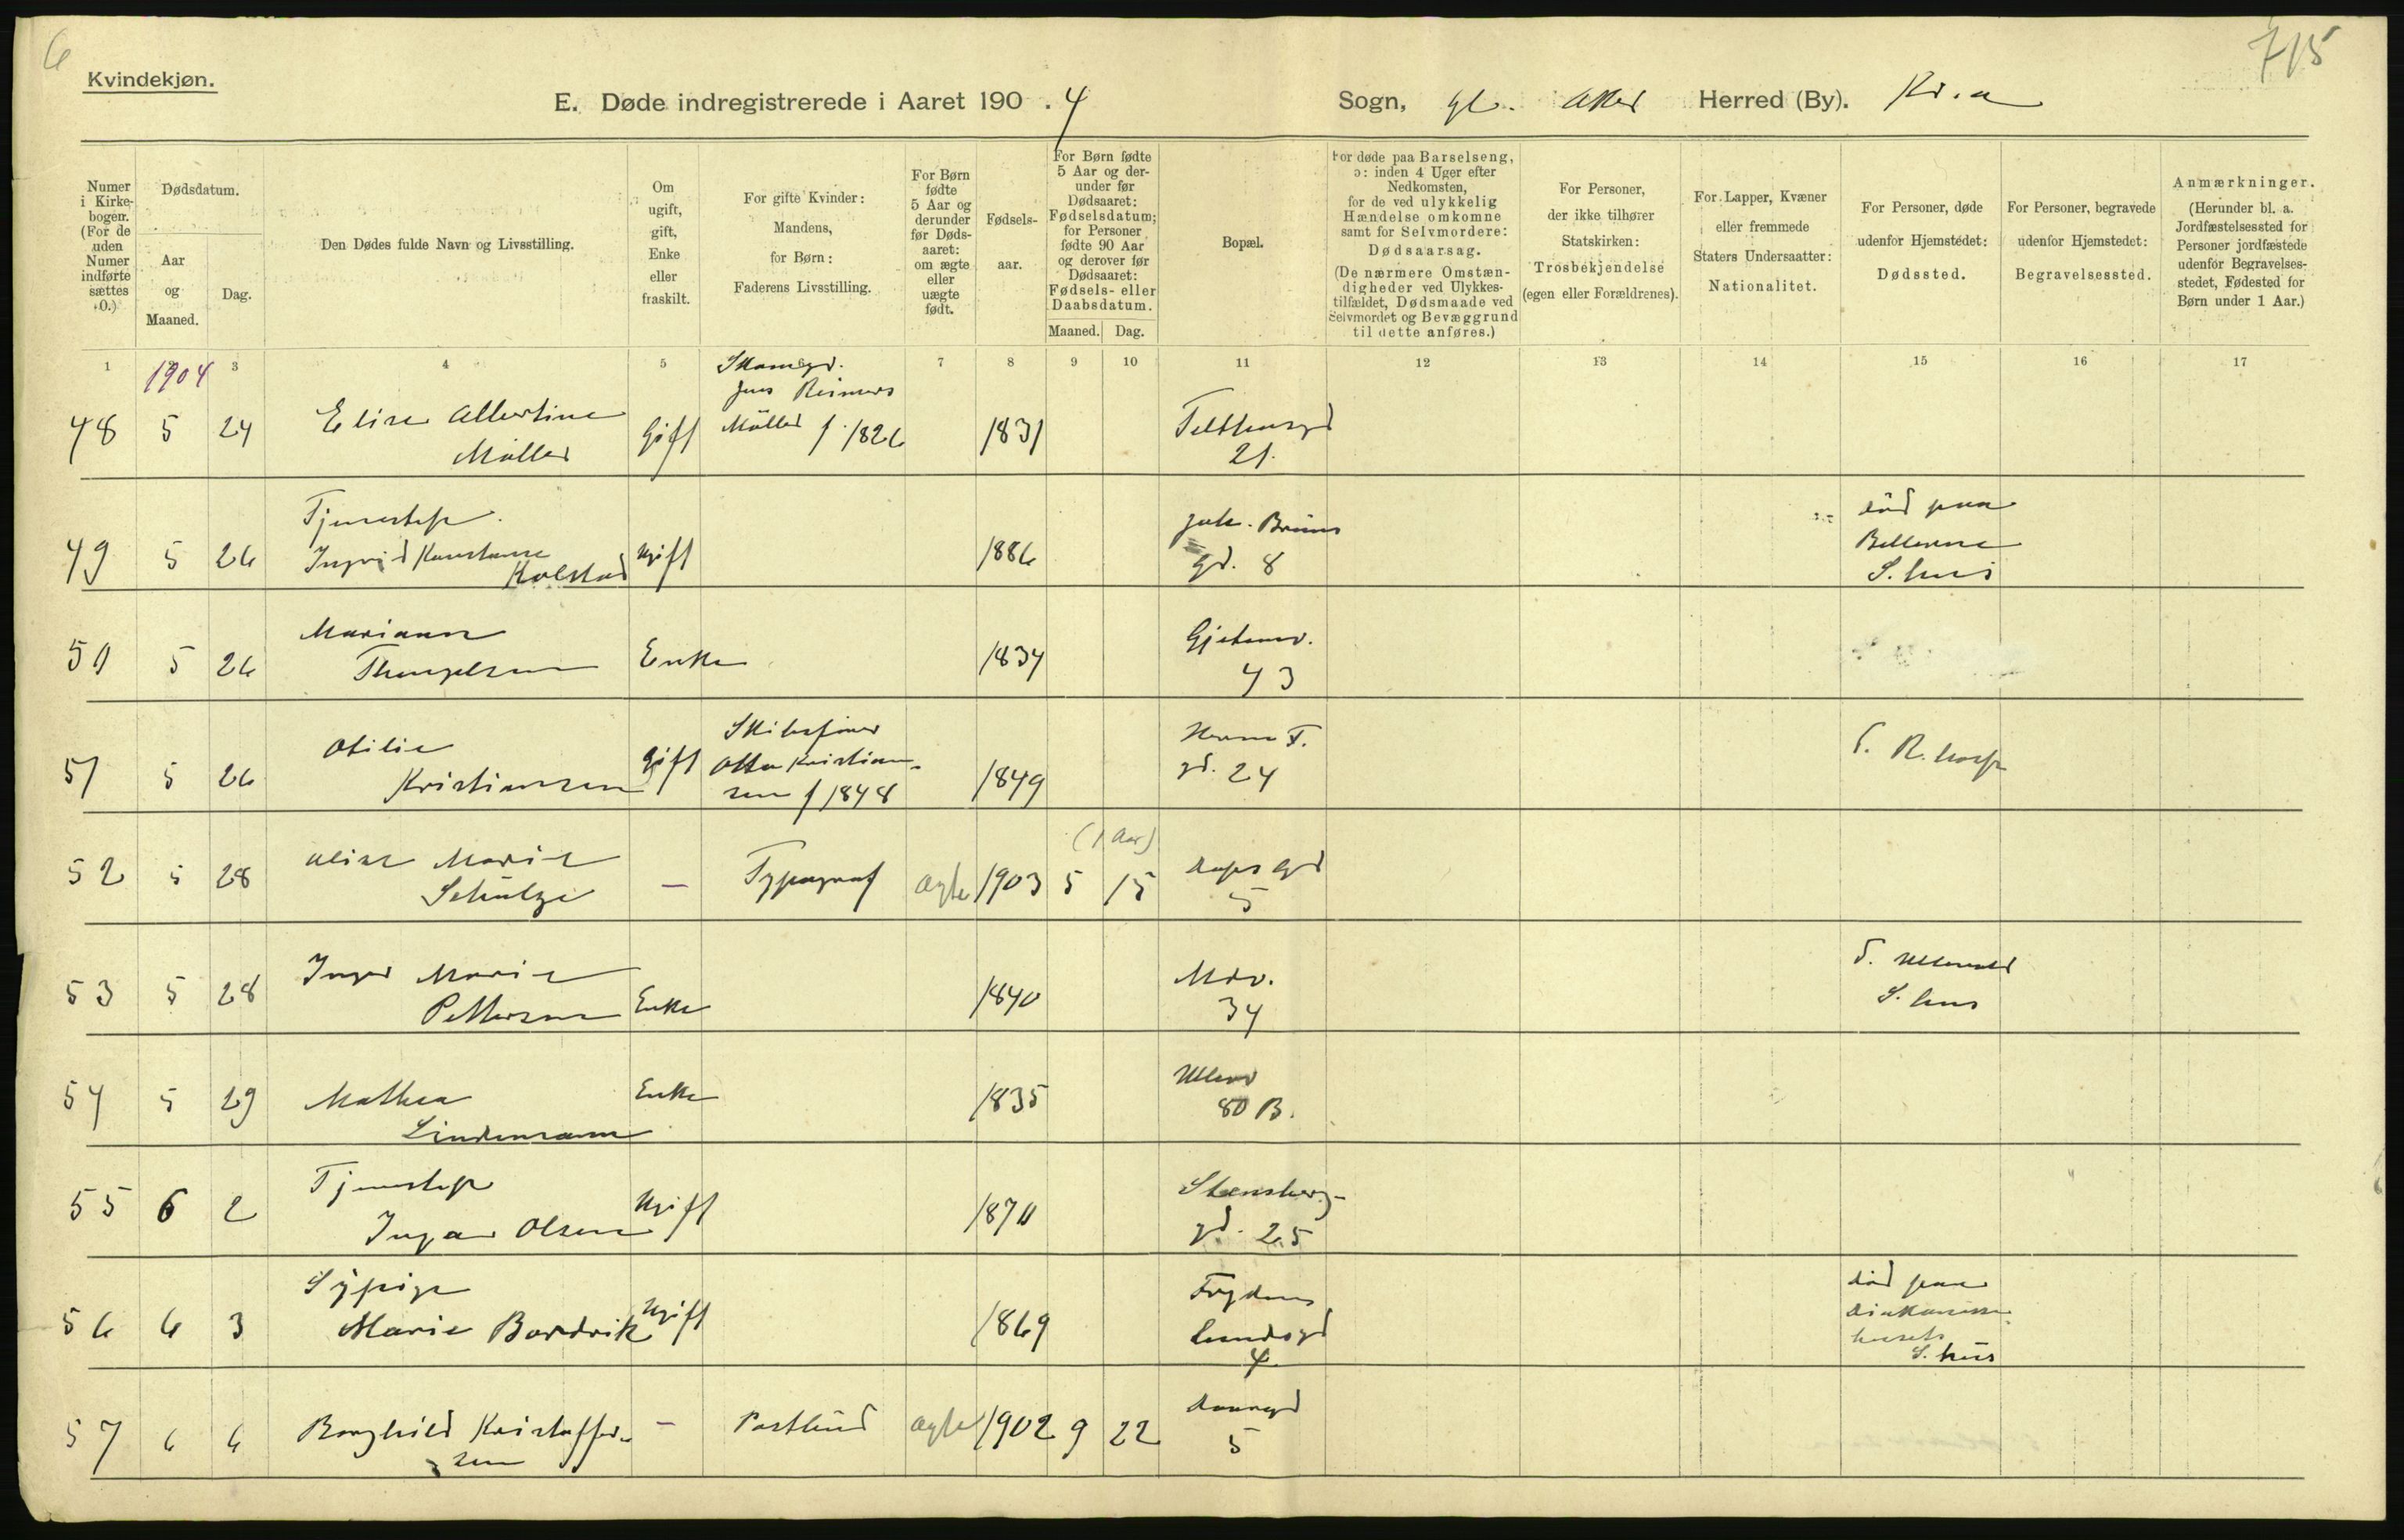 6
715
Kvindekjøn.
E. Døde indregistrerede i Aaret 190 . 4 Sogn, Gl. Aker Herred (By). Kr.a
Numer i Kirke-bogen. (For de uden Numer indførte sættes 0.)
Dødsdatum.
Aar og Maaned.
Dag.
Den Dødes fulde Navn og Livsstilling.
Om ugift, gift, Enke eller fraskilt.
For gifte Kvinder: Mandens, for Børn: Faderens Livsstilling.
For Børn fødte 5 Aar og derunder før Døds-aaret: om ægte eller uægte født.
Fødsels-aar.
For Børn fødte 5 Aar og der-under før Dødsaaret: Fødselsdatum; for Personer fødte 90 Aar og derover før Dødsaaret: Fødsels- eller Daabsdatum.
Maaned. Dag.
Bopæl.
For døde paa Barselseng, ɔ: inden 4 Uger efter Nedkomsten, for de ved ulykkelig Hændelse omkomne samt for Selvmordere: Dødsaarsag. (De nærmere Omstæn-digheder ved Ulykkes-tilfældet, Dødsmaade ved Selvmordet og Bevæggrund til dette anføres.)
For Personer, der ikke tilhører Statskirken: Trosbekjendelse (egen eller Forældrenes).
For Lapper, Kvæner eller fremmede Staters Undersaatter: Nationalitet.
For Personer, døde udenfor Hjemstedet: Dødssted.
For Personer, begravede udenfor Hjemstedet: Begravelsessted.
Anmærkninger. (Herunder bl. a. Jordfæstelsessted for Personer jordfæstede udenfor Begravelses-stedet, Fødested for Børn under 1 Aar.)
1 3 4 5 6 7 8 9 10 11 12 13 14 15 16 17
1904
48 5 24 Elise Albertine Møller Gift Jens Reimers Møller f. 1826 1831 Telthusgd 21.
49 5 26 Tjenestep. Ingrid Konstanse Kolstad Ugift 1886 Joh. Bruns gd. 8 død paa Betlenne S. hus
50 5 26 Marianne Enke 1834 Gjetemv. 43
51 5 26 Otilie Kristiansen Gift Otto Kristian-sen f 1848 1849 gd. 24 d. R. hosp
52 5 28 Marie Schultze — Typograf ægte 1903 5 15 (1 Aar) Daas gd 5
53 5 28 Inger Marie Pettersen Enke 1840 Mdv. 34 d. Ullevold S. hus
54 5 29 Mathea Lindemann Enke 1835 Ullevv 80 B.
55 6 2 Tjenestep Inga Olsen Ugift 1870 Stensberg-gd. 25
56 6 3 Sypige Marie Bordvik Ugift 1869 Frydenlundsgd 4 død paa Diakonisse-husets S. hus
57 6 6 Borghild Kristoffer-sen — Postbud ægte 1902 9 22 5